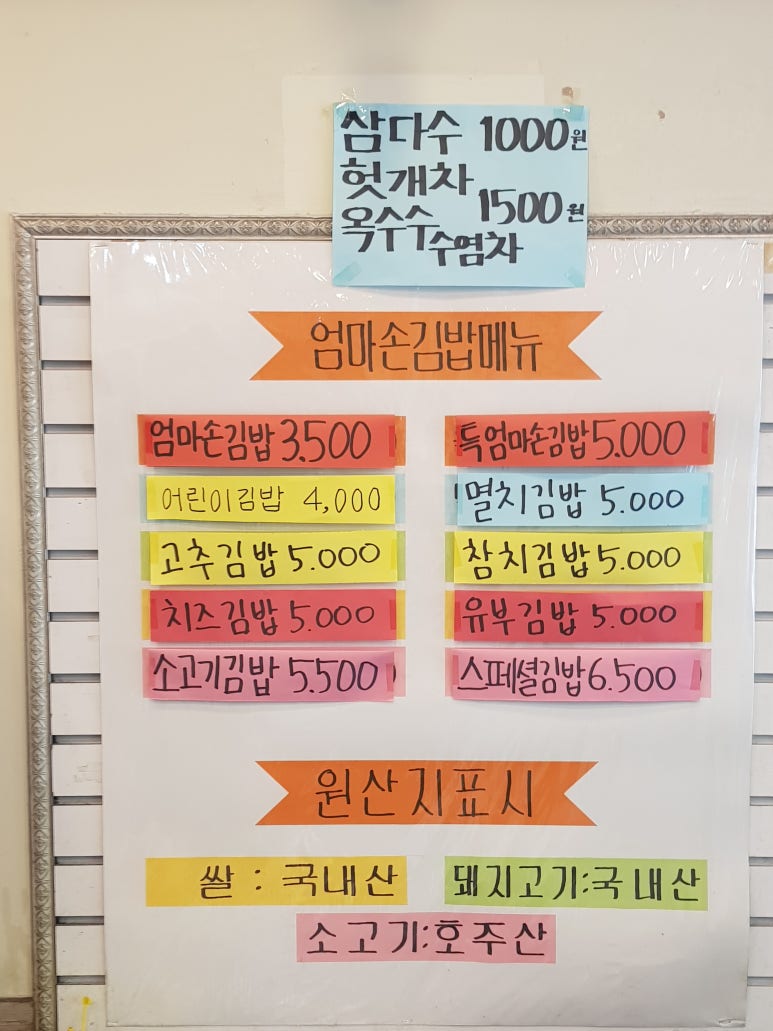 삼다수 1000원
헛개차
옥수수 수염차 1500원
엄마손김밥메뉴
엄마손김밥 3.500
특엄마손김밥 5.000
어린이김밥 4,000
멸치김밥 5.000
고추김밥 5.000
참치김밥 5.000
치즈김밥 5.000
유부김밥 5.000
소고기김밥 5.500
스페셜김밥 6.500
원산지표시
쌀 : 국내산
돼지고기:국내산
소고기:호주산